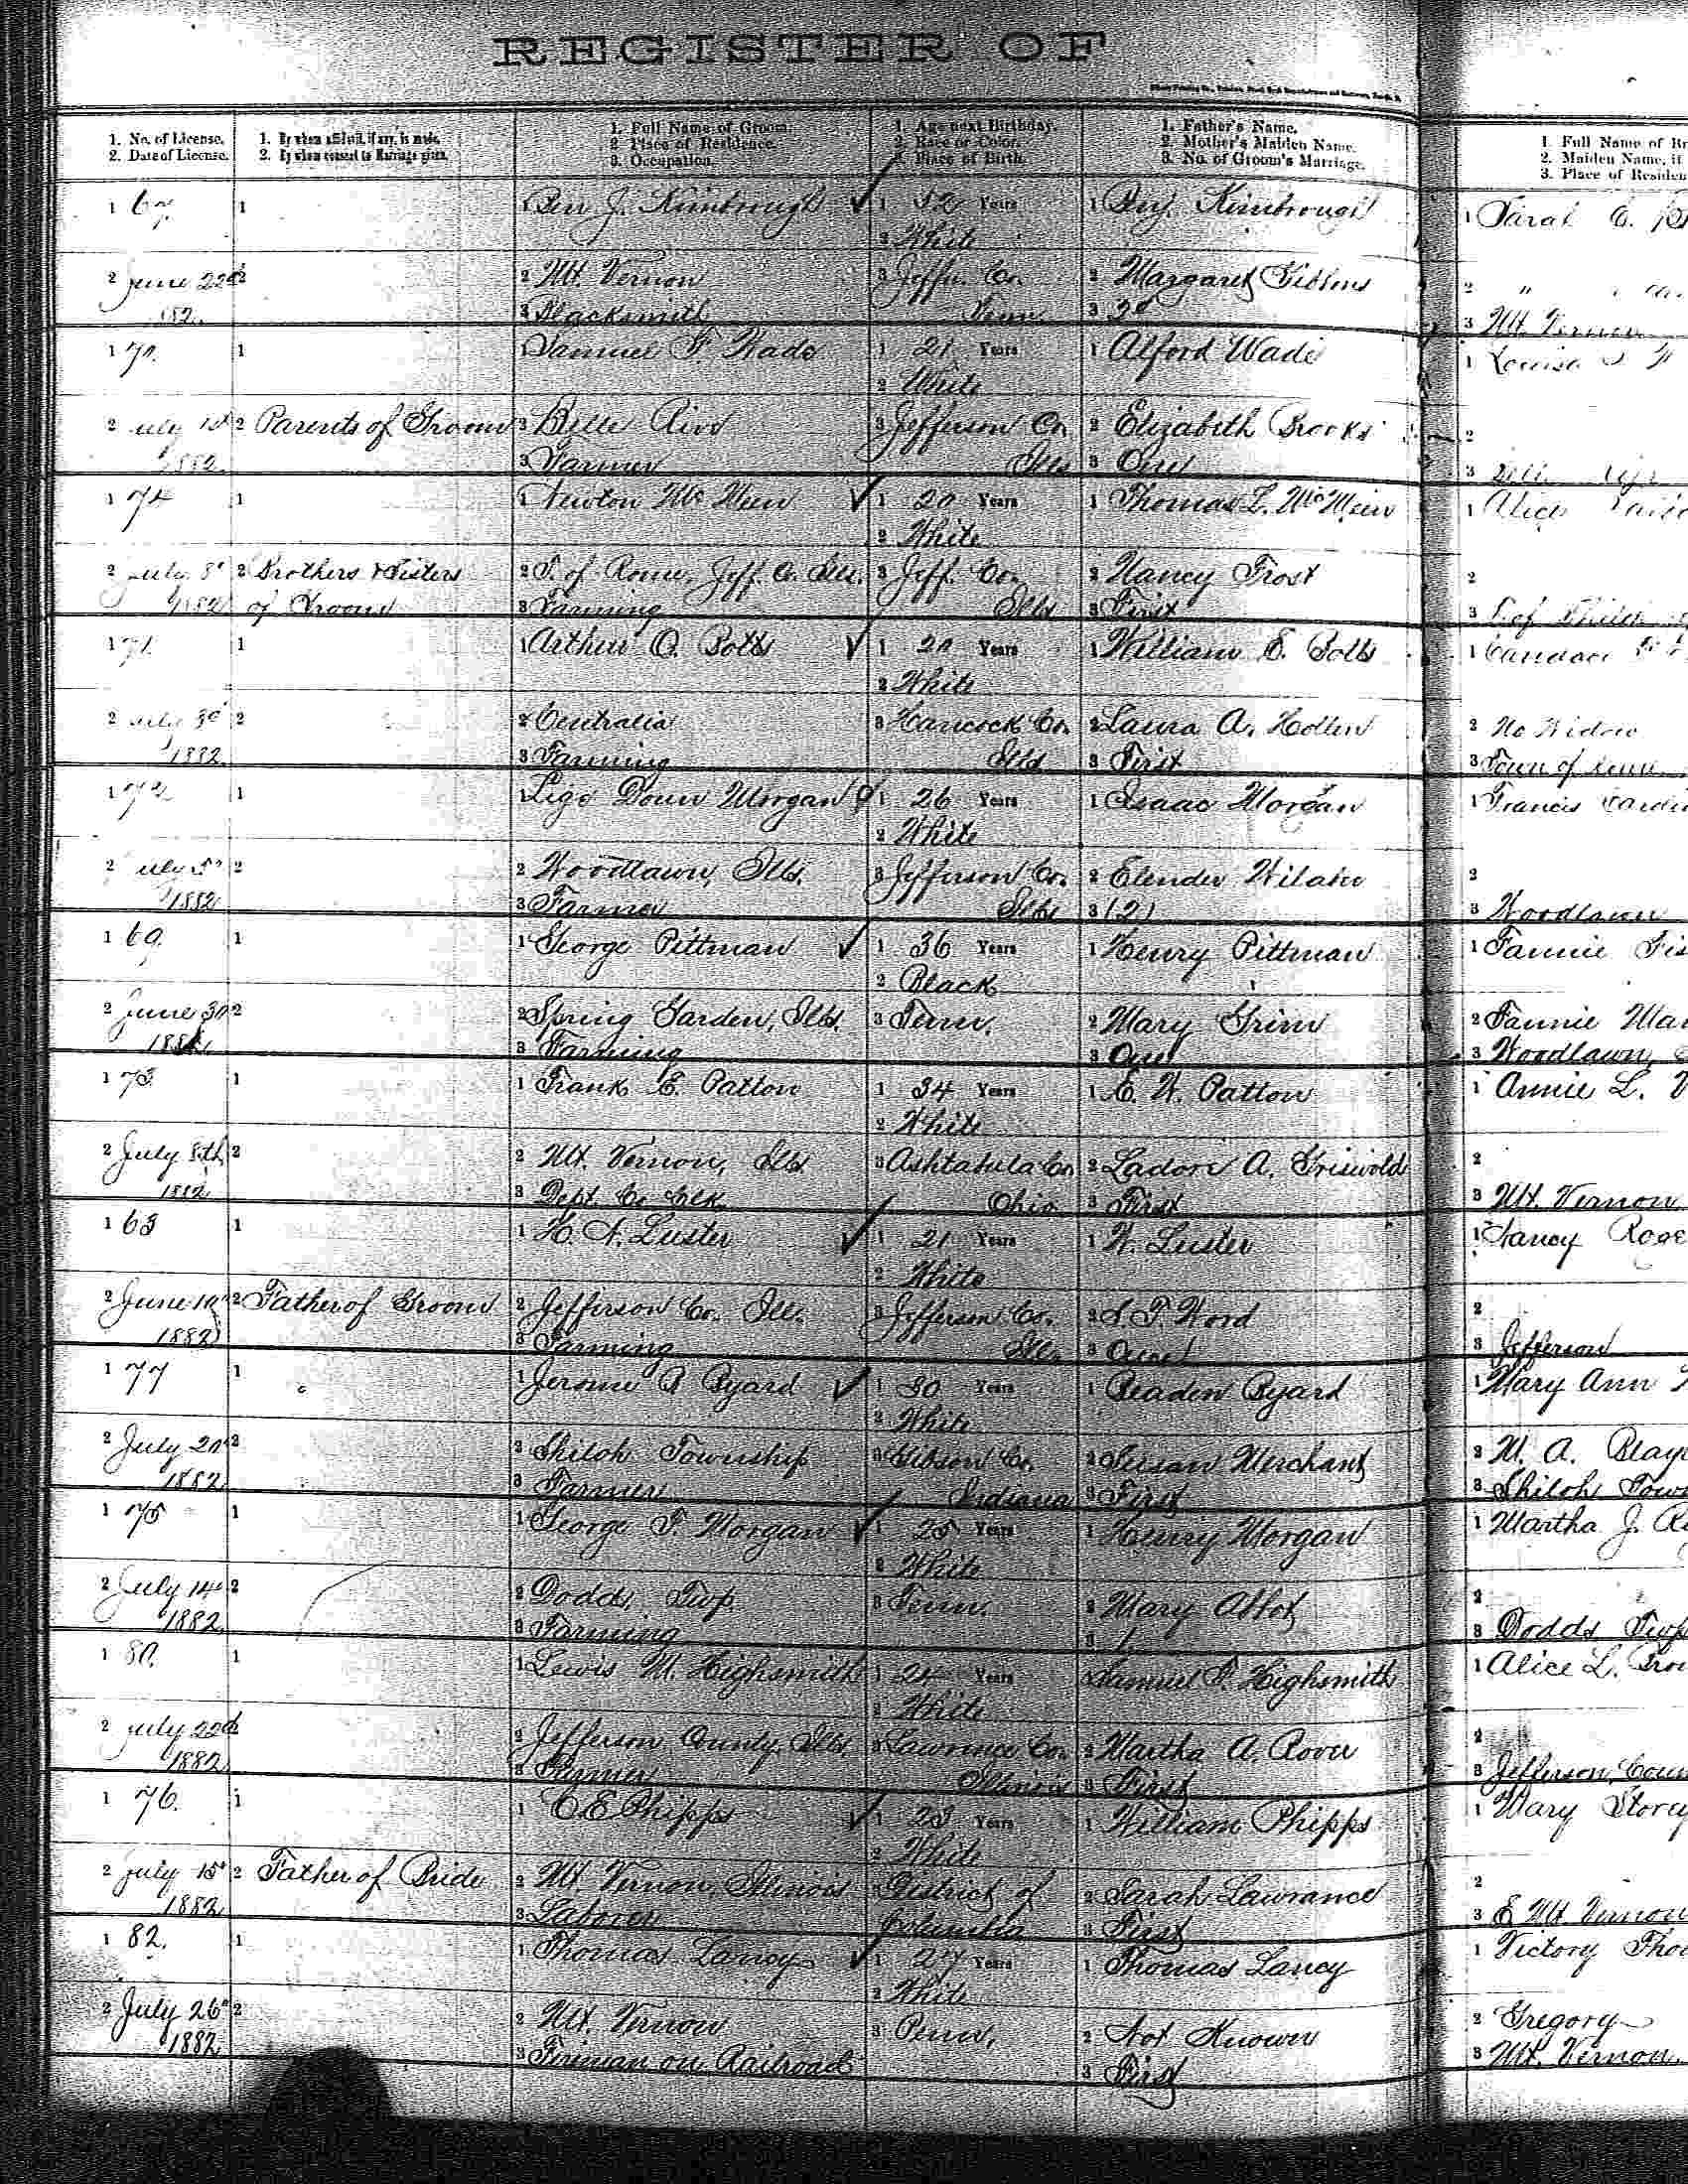 REGISTER OF
1. No. of License.
2. Date of License.
1. By whom affidavit, if any, is made.
2. By whom consent to Marriage given.
1. Full Name of Groom.
2. Place of Residence.
3. Occupation.
1. Age next Birthday.
2. Race or Color.
3. Place of Birth.
1. Father's Name.
2. Mother's Maiden Name.
3. No. of Groom's Marriage.
1. Full Name of Br
2. Maiden Name, if
3. Place of Residen
1 67 1 1 Ben J. Kimbrough 1 52 Years 1 Benj. Kimbrough 1 Sarah E.
2 White
2 June 22d 2 2 Mt. Vernon 3 Jeffn. Co. 2 Margaret Giblens 2 "
1882 3 Blacksmith Tenn. 3 2d 3 Mt. Vernon
1 70 1 1 Samuel F. Wade 1 21 Years 1 Alford Wade 1 Louisa
2 White
2 July 1st 2 Parents of Groom 2 Belle Rive 3 Jefferson Co. 2 Elizabeth Brooks 2
1882 3 Farmer Ills 3 One 3
1 74 1 1 Newton McMeen 1 20 Years 1 Thomas L. McMeen 1 Alice
2 White
2 July 8th 2 Brothers & Sisters 2 T. of Rome, Jeff. Co. Ills. 3 Jeff. Co. 2 Nancy Frost 2
1882 of Groom 3 Farming Ills 3 First 3
1 71 1 1 Arthur O. Potts 1 20 Years 1 William E. Potts 1 Candace
2 White
2 July 3d 2 2 Centralia 3 Hancock Co. 2 Laura A. Hollen 2 No Widow
1882 3 Farming Ills 3 First 3 Town of
1 72 1 1 Lige Doun Morgan 1 26 Years 1 Isaac Morgan 1 Francis
2 White
2 July 5th 2 2 Woodlawn, Ills. 3 Jefferson Co. 2 Elender 2
1882 3 Farmer Ills 3 (2) 3 Woodlawn
1 69 1 1 George Pittman 1 36 Years 1 Henry Pittman 1 Fannie Fis
2 Black
2 June 30 2 2 Spring Garden, Ills. 3 Tenn. 2 Mary Grim 2 Fannie Mar
1882 3 Farming 3 One 3 Woodlawn,
1 73 1 1 Frank E. Patton 1 34 Years 1 E. W. Patton 1 Annie L.
2 White
2 July 8th 2 2 Mt. Vernon, Ills 3 Ashtabula Co 2 Ladore A. Griswold 2
1882 3 Dept. Co. Clk. Ohio 3 First 3 Mt. Vernon
1 63 1 1 H. N. Luster 1 21 Years 1 W. Luster 1 Nancy Roge
2 White
2 June 10th 2 Father of Groom 2 Jefferson Co. Ill. 3 Jefferson Co. 2 S. P. Word 2
1882 3 Farming Ills 3 One 3 Jefferson
1 77 1 1 Jerome B Byard 1 30 Years 1 Readen Byard 1 Mary Ann
2 White
2 July 20th 2 2 Shiloh Township 3 Gibson Co. 2 Susan Merchant 2 M. A.
1882 3 Farmer Indiana 3 First 3 Shiloh Town
1 75 1 1 George T. Morgan 1 25 Years 1 Henry Morgan 1 Martha J.
2 White
2 July 14th 2 2 Dodds Twp. 3 Tenn. 2 Mary Abbot 2
1882 3 Farming 3 1 3 Dodds Twp
1 80. 1 1 Lewis M. Highsmith 1 24 Years 1 Samuel T. Highsmith 1 Alice L.
2 White
2 July 22d 2 2 Jefferson County, Ills. 3 Lawrence Co. 2 Martha A. Rover 2
1882 3 Farmer Illinois 3 First 3 Jefferson Coun
1 76. 1 1 C E Phipps 1 23 Years 1 William Phipps 1 Mary Storey
2 White
2 July 15th 2 Father of Bride 2 Mt. Vernon, Illinois 3 District of 2 Sarah Lawrance 2
1882 3 Laborer Columbia 3 First 3 E Mt Vernon
1 82. 1 1 Thomas Lancy 1 27 Years 1 Thomas Lancy 1 Victory Tho
2 White
2 July 26th 2 2 Mt. Vernon 3 Penn. 2 Not Known 2 Gregory
1882 3 Fireman on Railroad 3 First 3 Mt. Vernon.